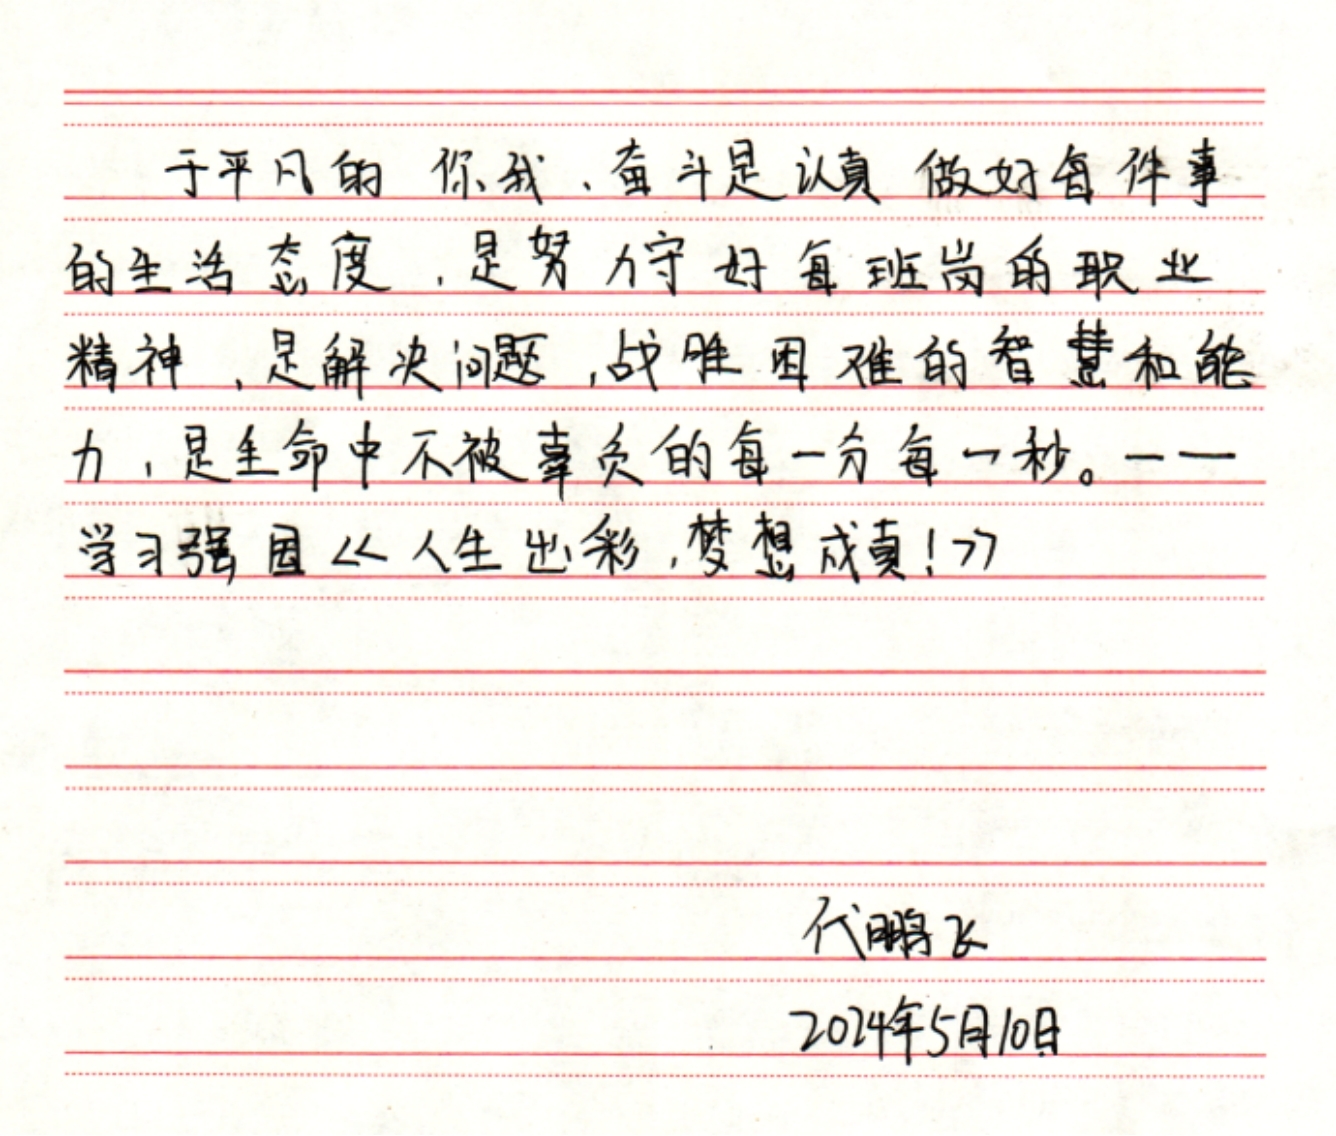 于平凡的你我，奋斗是认真做好每件事
的生活态度，是努力守好每班岗的职业
精神，是解决问题，战胜困难的智慧和能
力，是生命中不被辜负的每一分每一秒。——
学习强国《人生出彩，梦想成真！》
代鹏飞
2024年5月10日